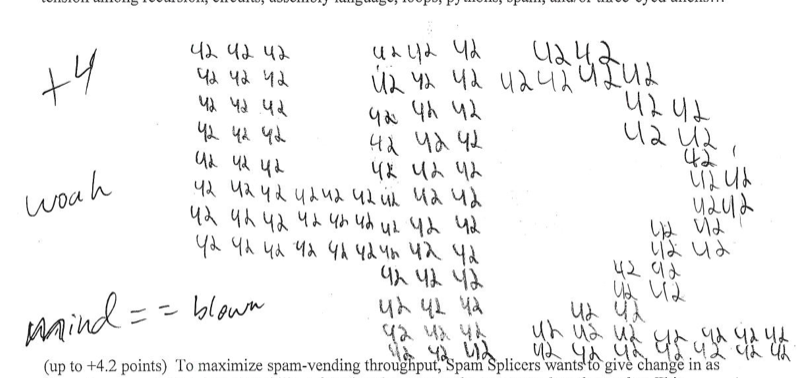 tension among recursion, circuits, assembly language, loops, pythons, spam, and/or three-eyed aliens...
42 42 42 42 42 42 42 42
+4
42 42 42 42 42 42 42 42 42 42
42 42 42 42 42 42 42 42
42 42 42 42 42 42 42 42
42
42 42 42 42 42 42 42 42
woah
42 42 42 42 42 42 42 42 42 42 42
42 42 42 42 42 42 42 42 42 42 42
42 42 42 42 42 42 42 42 42 42 42
42 42 42 42 42
42 42
mind == blown
42 42 42 42 42
42 42 42 42 42 42 42 42 42 42
42 42 42 42 42 42 42 42 42 42
(up to +4.2 points) To maximize spam-vending throughput, Spam Splicers wants to give change in as